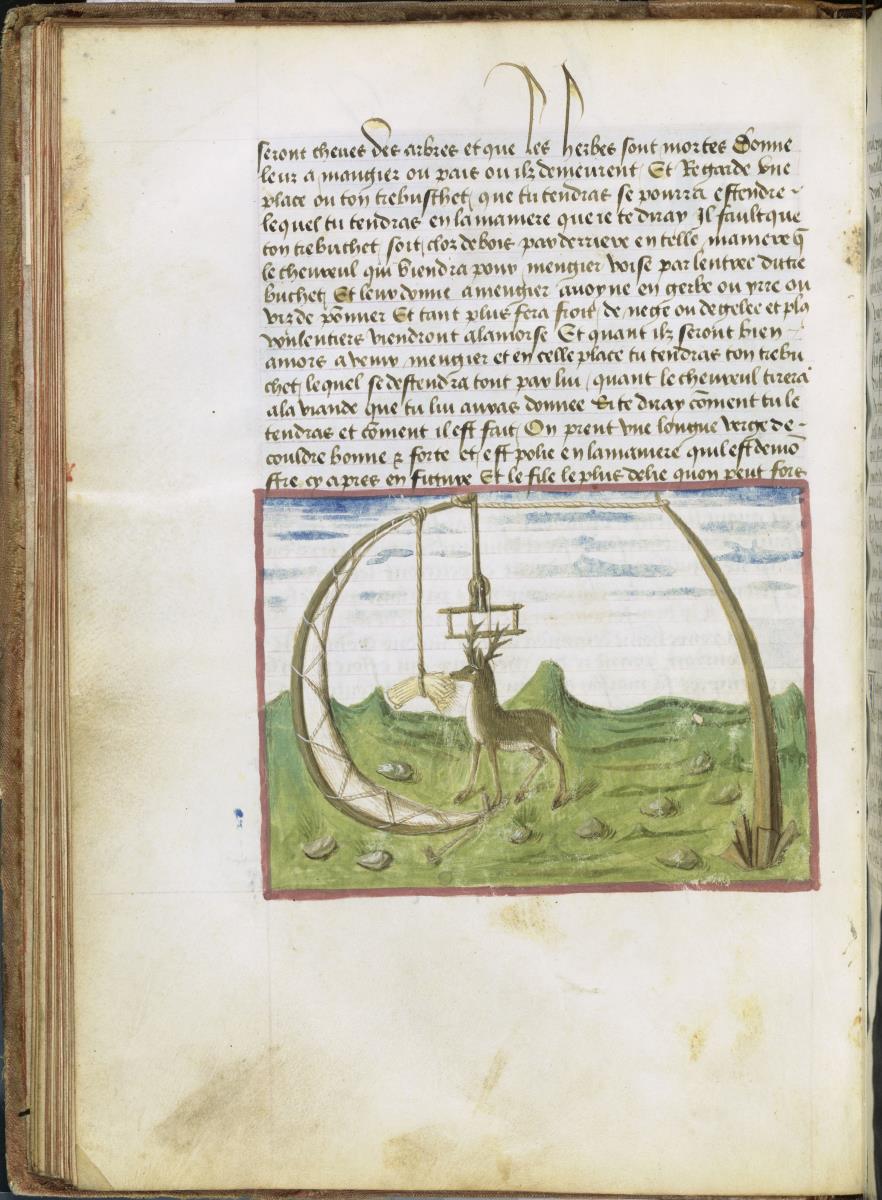 seront cheues des arbres et que les herbes sont mortes Donne
leur a mangier ou pais ou ilz demeurent Et Regarde vne
place ou ton trebusthet que tu tendras se pourra estendre
lequel tu tendras en la maniere que ie te diray Il fault que
ton trebuchet soit clos de bois par derriere en telle maniere q̄
le cheureul qui viendra pour mengier voise par lentree du tre
buchet Et leur donne a mengier auoyne en gerbe ou
de pōmier Et tant plus fera froit de nege ou de gelee et plꝯ
voulentiers viendront a la morse Et quant ilz seront bien
amors a venir mengier et en celle place tu tendras ton trebu
chet lequel se destendra tout par lui quant le cheureul tirera
a la viande que tu lui auras donnee Si te diray cōment tu le
tendras et cōment il est fait On prent vne longue verge de
couldre bonne & forte et est polie en la maniere quil est demō
stre cy apres en figure Et le file le plus delie quon peut fors